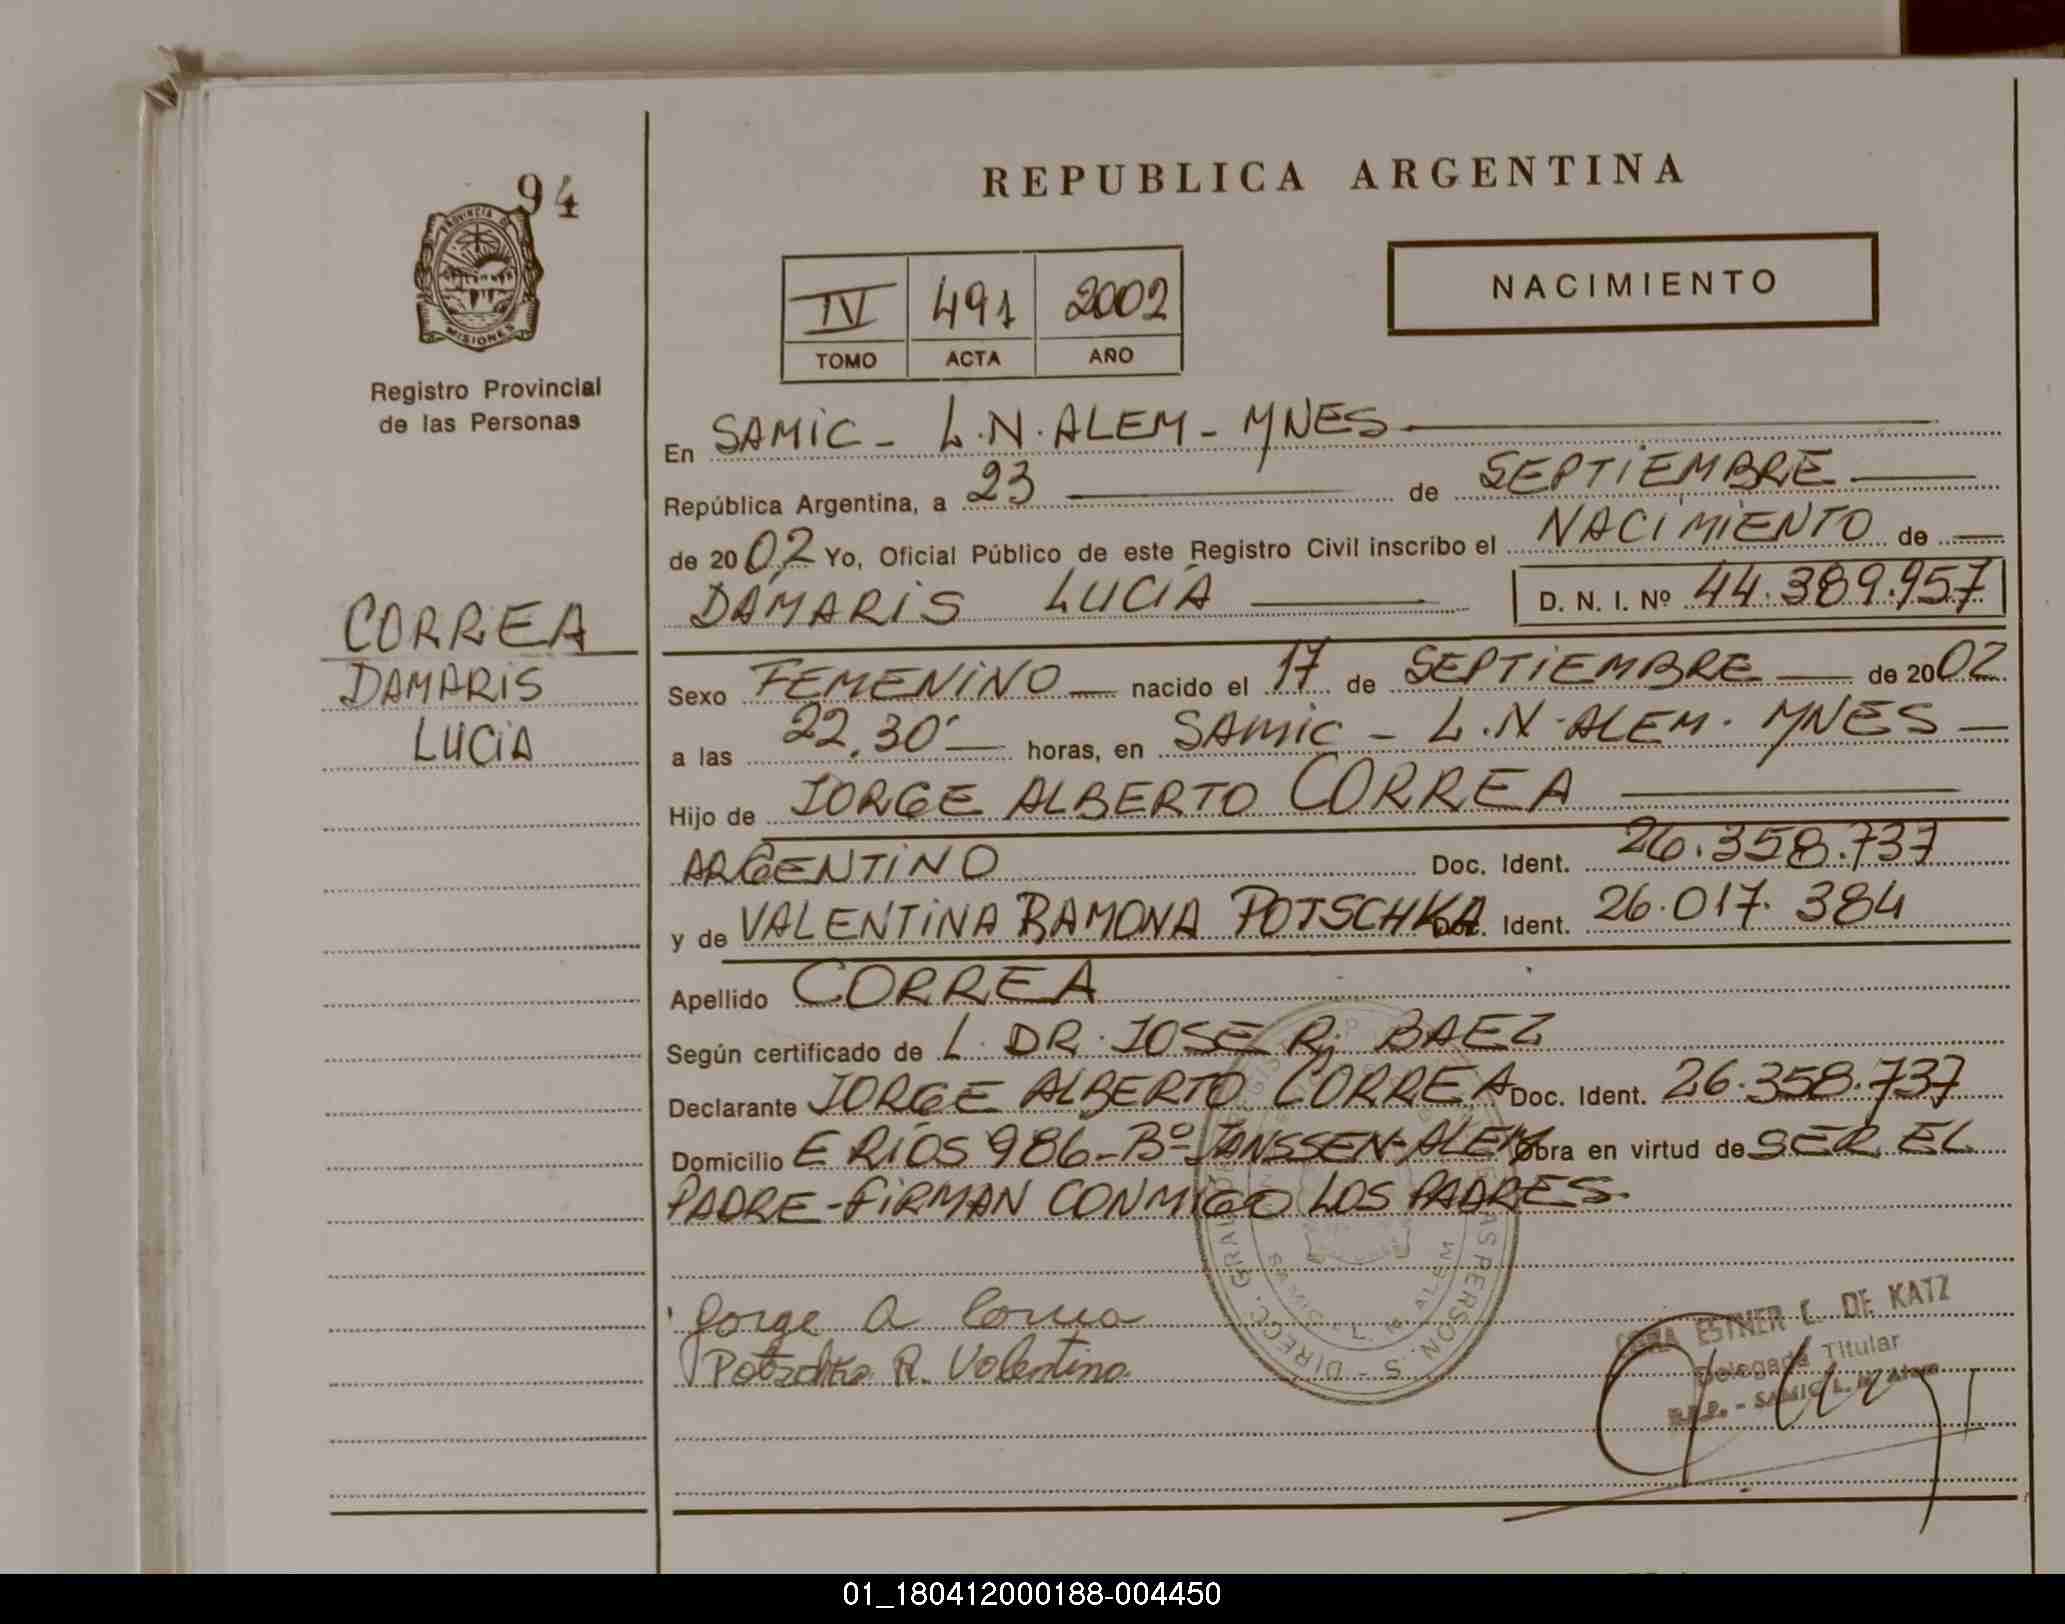 94
PROVINCIA DE
MISIONES
Registro Provincial
de las Personas
CORREA
DAMARIS
LUCIA
REPUBLICA ARGENTINA
NACIMIENTO
IV 491 2002
TOMO ACTA AÑO
En SAMIC - L.N.ALEM - MNES
República Argentina, a 23 de SEPTIEMBRE
de 2002 Yo, Oficial Público de este Registro Civil inscribo el NACIMIENTO de
DAMARIS LUCIA D. N. I. Nº 44.389.957
Sexo FEMENINO nacido el 17 de SEPTIEMBRE de 2002
a las 22.30' horas, en SAMIC - L.N.ALEM. MNES
Hijo de JORGE ALBERTO CORREA
ARGENTINO Doc. Ident. 26.358.737
y de VALENTINA RAMONA POTSCHKA Doc. Ident. 26.017.384
Apellido CORREA
Según certificado de L. DR. JOSE R. BAEZ
Declarante JORGE ALBERTO CORREA Doc. Ident. 26.358.737
Domicilio E RIOS 986-Bº JANSSEN-ALEM Obra en virtud de SER EL
PADRE-FIRMAN CONMIGO LOS PADRES.
Jorge A Correa
Potschka R. Valentina
ESTHER C. DE KATZ
Delegada Titular
R.P.P. - SAMIC L. N. Alem
SAMIC - L. N. ALEM
01_180412000188-004450